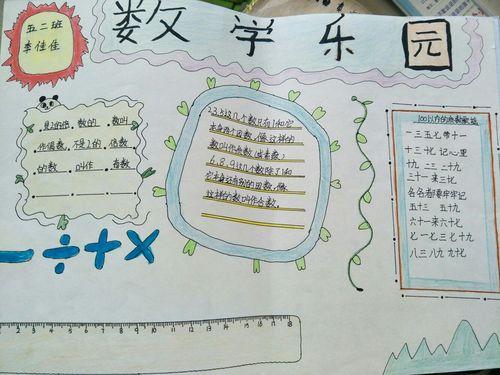 五二班
李佳佳
数学乐元
是2的倍数的数叫
作偶数,不是2的倍数
的数叫作奇数
2.3.5.这几个数只有1和它
本身两个因数,像这样的
数叫作质数(或素数)
6.8.9这几个数除了1和
它本身还有别的因数,像
这样的数叫作合数.
100以内的质数歌谣
一三五七带十一
十三十七 记心里
十九 二三 二十九
三十一来 三十七
五十三 五十九
六十一来六十七
七一七三七十九
八三八九 九十七
1 2 3 4 5 6 7 8 9 10 11 12 13 14 15 16 17 18
− ÷ + ×